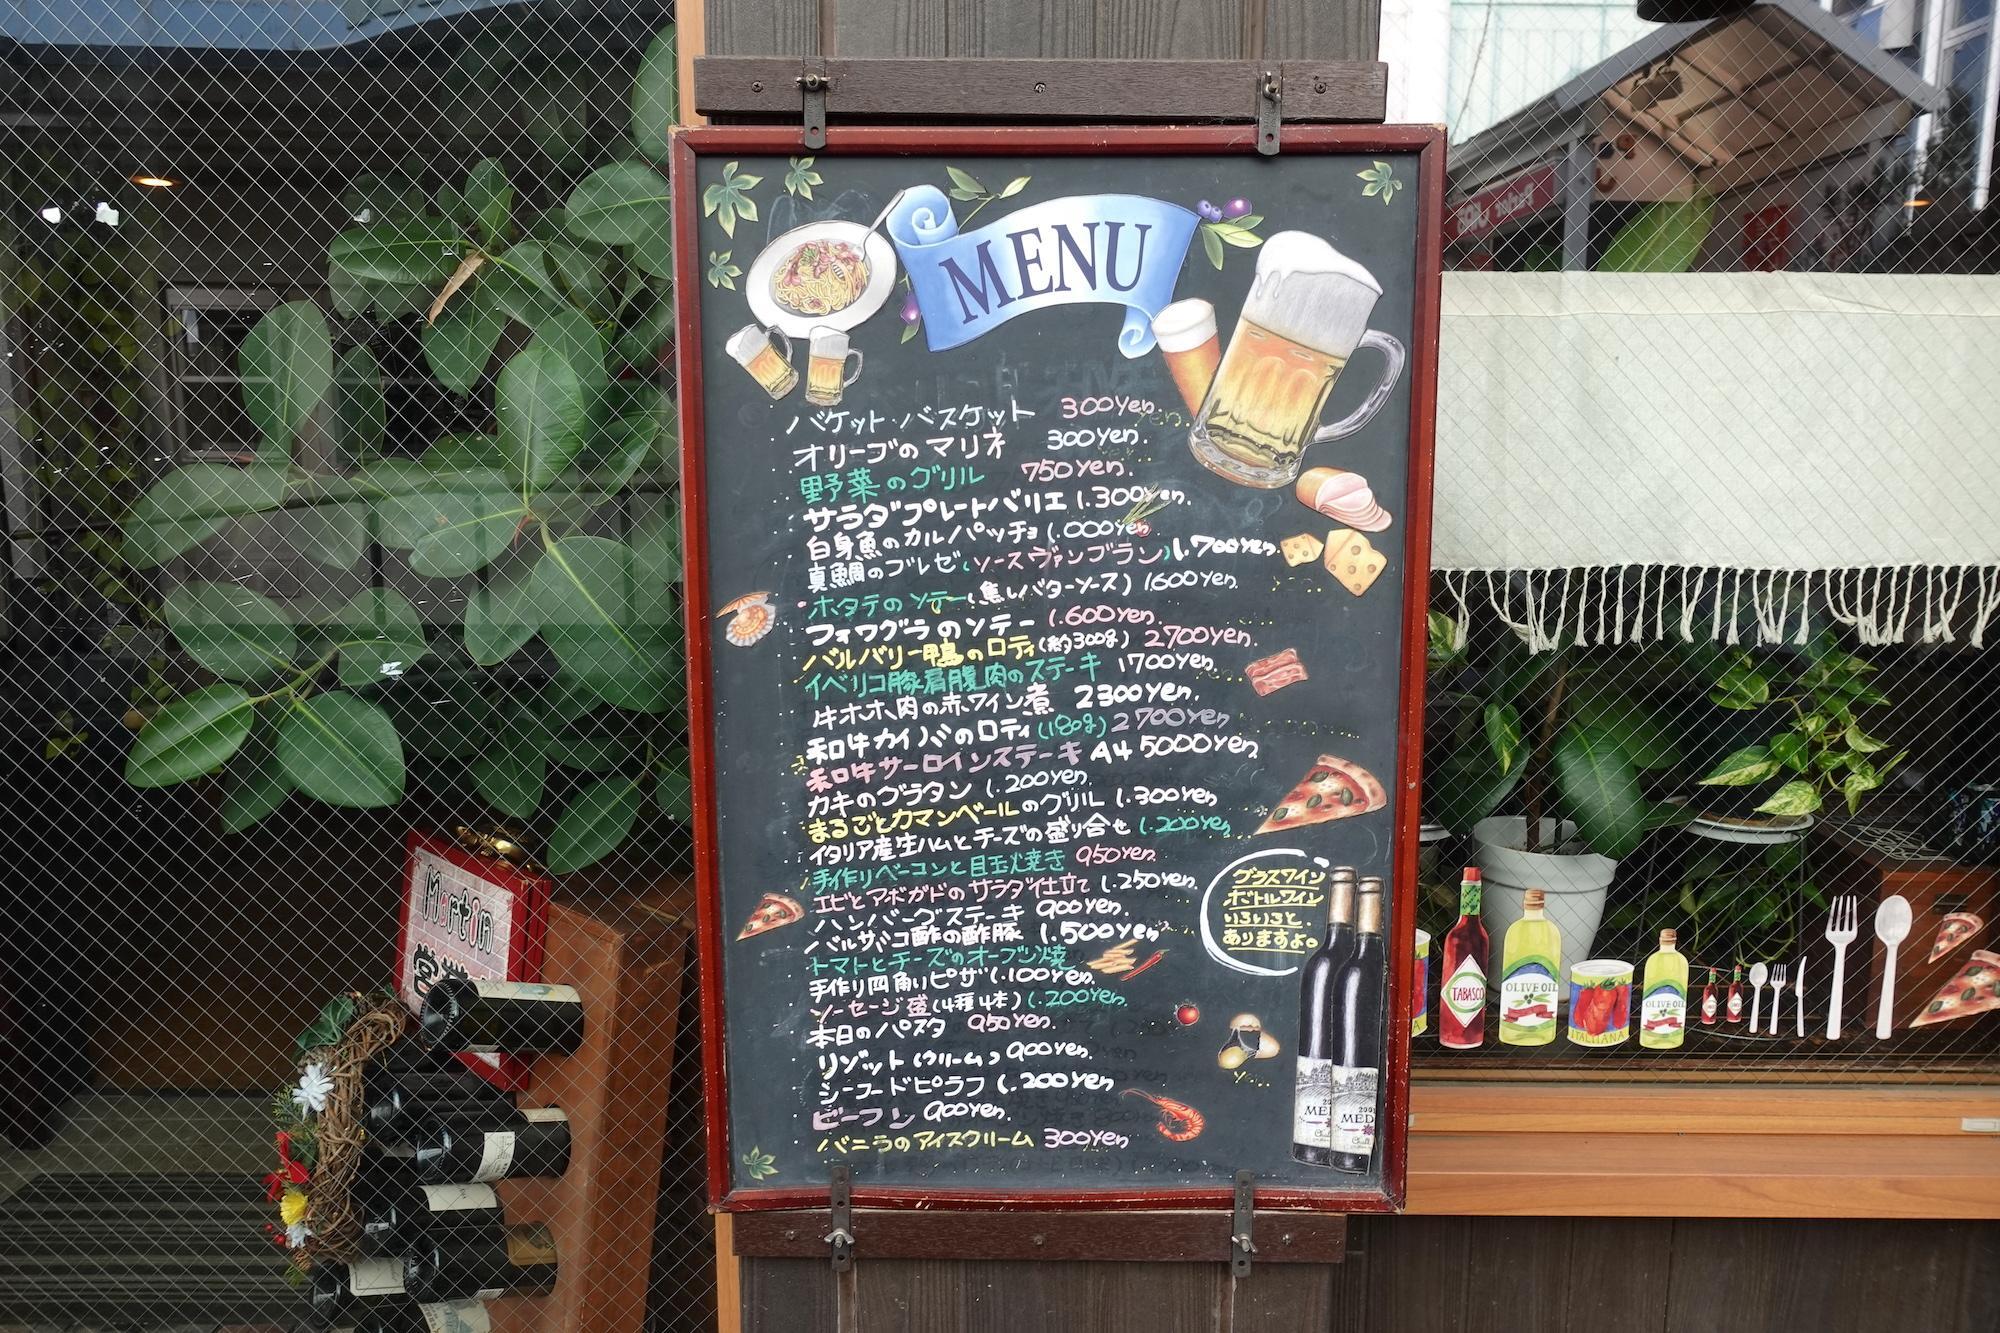 MENU
バケット・バスケット 300yen.
オリーブのマリネ 300yen.
野菜のグリル 750yen.
サラダプレートバリエ 1.300yen.
白身魚のカルパッチョ 1.000yen
真鯛のブレゼ(ソースヴァンブラン) 1.700yen.
ホタテのソテー(焦しバターソース) 1600yen.
フォワグラのソテー 1.600yen.
バルバリー鴨のロティ(約300g) 2700yen.
イベリコ豚肩腹肉のステーキ 1700yen.
牛ホホ肉の赤ワイン煮 2300yen.
和牛カイノバのロティ(180g) 2700yen
和牛サーロインステーキ A4 5000yen
カキのグラタン 1.200yen.
まるごとカマンベールのグリル 1.300yen
イタリア産生ハムとチーズの盛り合せ 1.200yen
手作りベーコンと目玉焼き 950yen.
エビとアボガドのサラダ仕立て 1.250yen.
ハンバーグステーキ 900yen.
バルサミコ酢の酢豚 1.500yen
トマトとチーズのオーブン焼
手作り四角いピザ 1.100yen.
ソーセージ盛(4種4本) 1.200yen.
本日のパスタ 950yen.
リゾット(クリーム) 900yen.
シーフードピラフ 1.200yen
ビーフン 900yen.
バニラのアイスクリーム 300yen
グラスワイン
ボトルワイン
いろいろと
ありますよ。
Martin
営業
TABASCO
OLIVE OIL
ITALIANA
OLIVE OIL